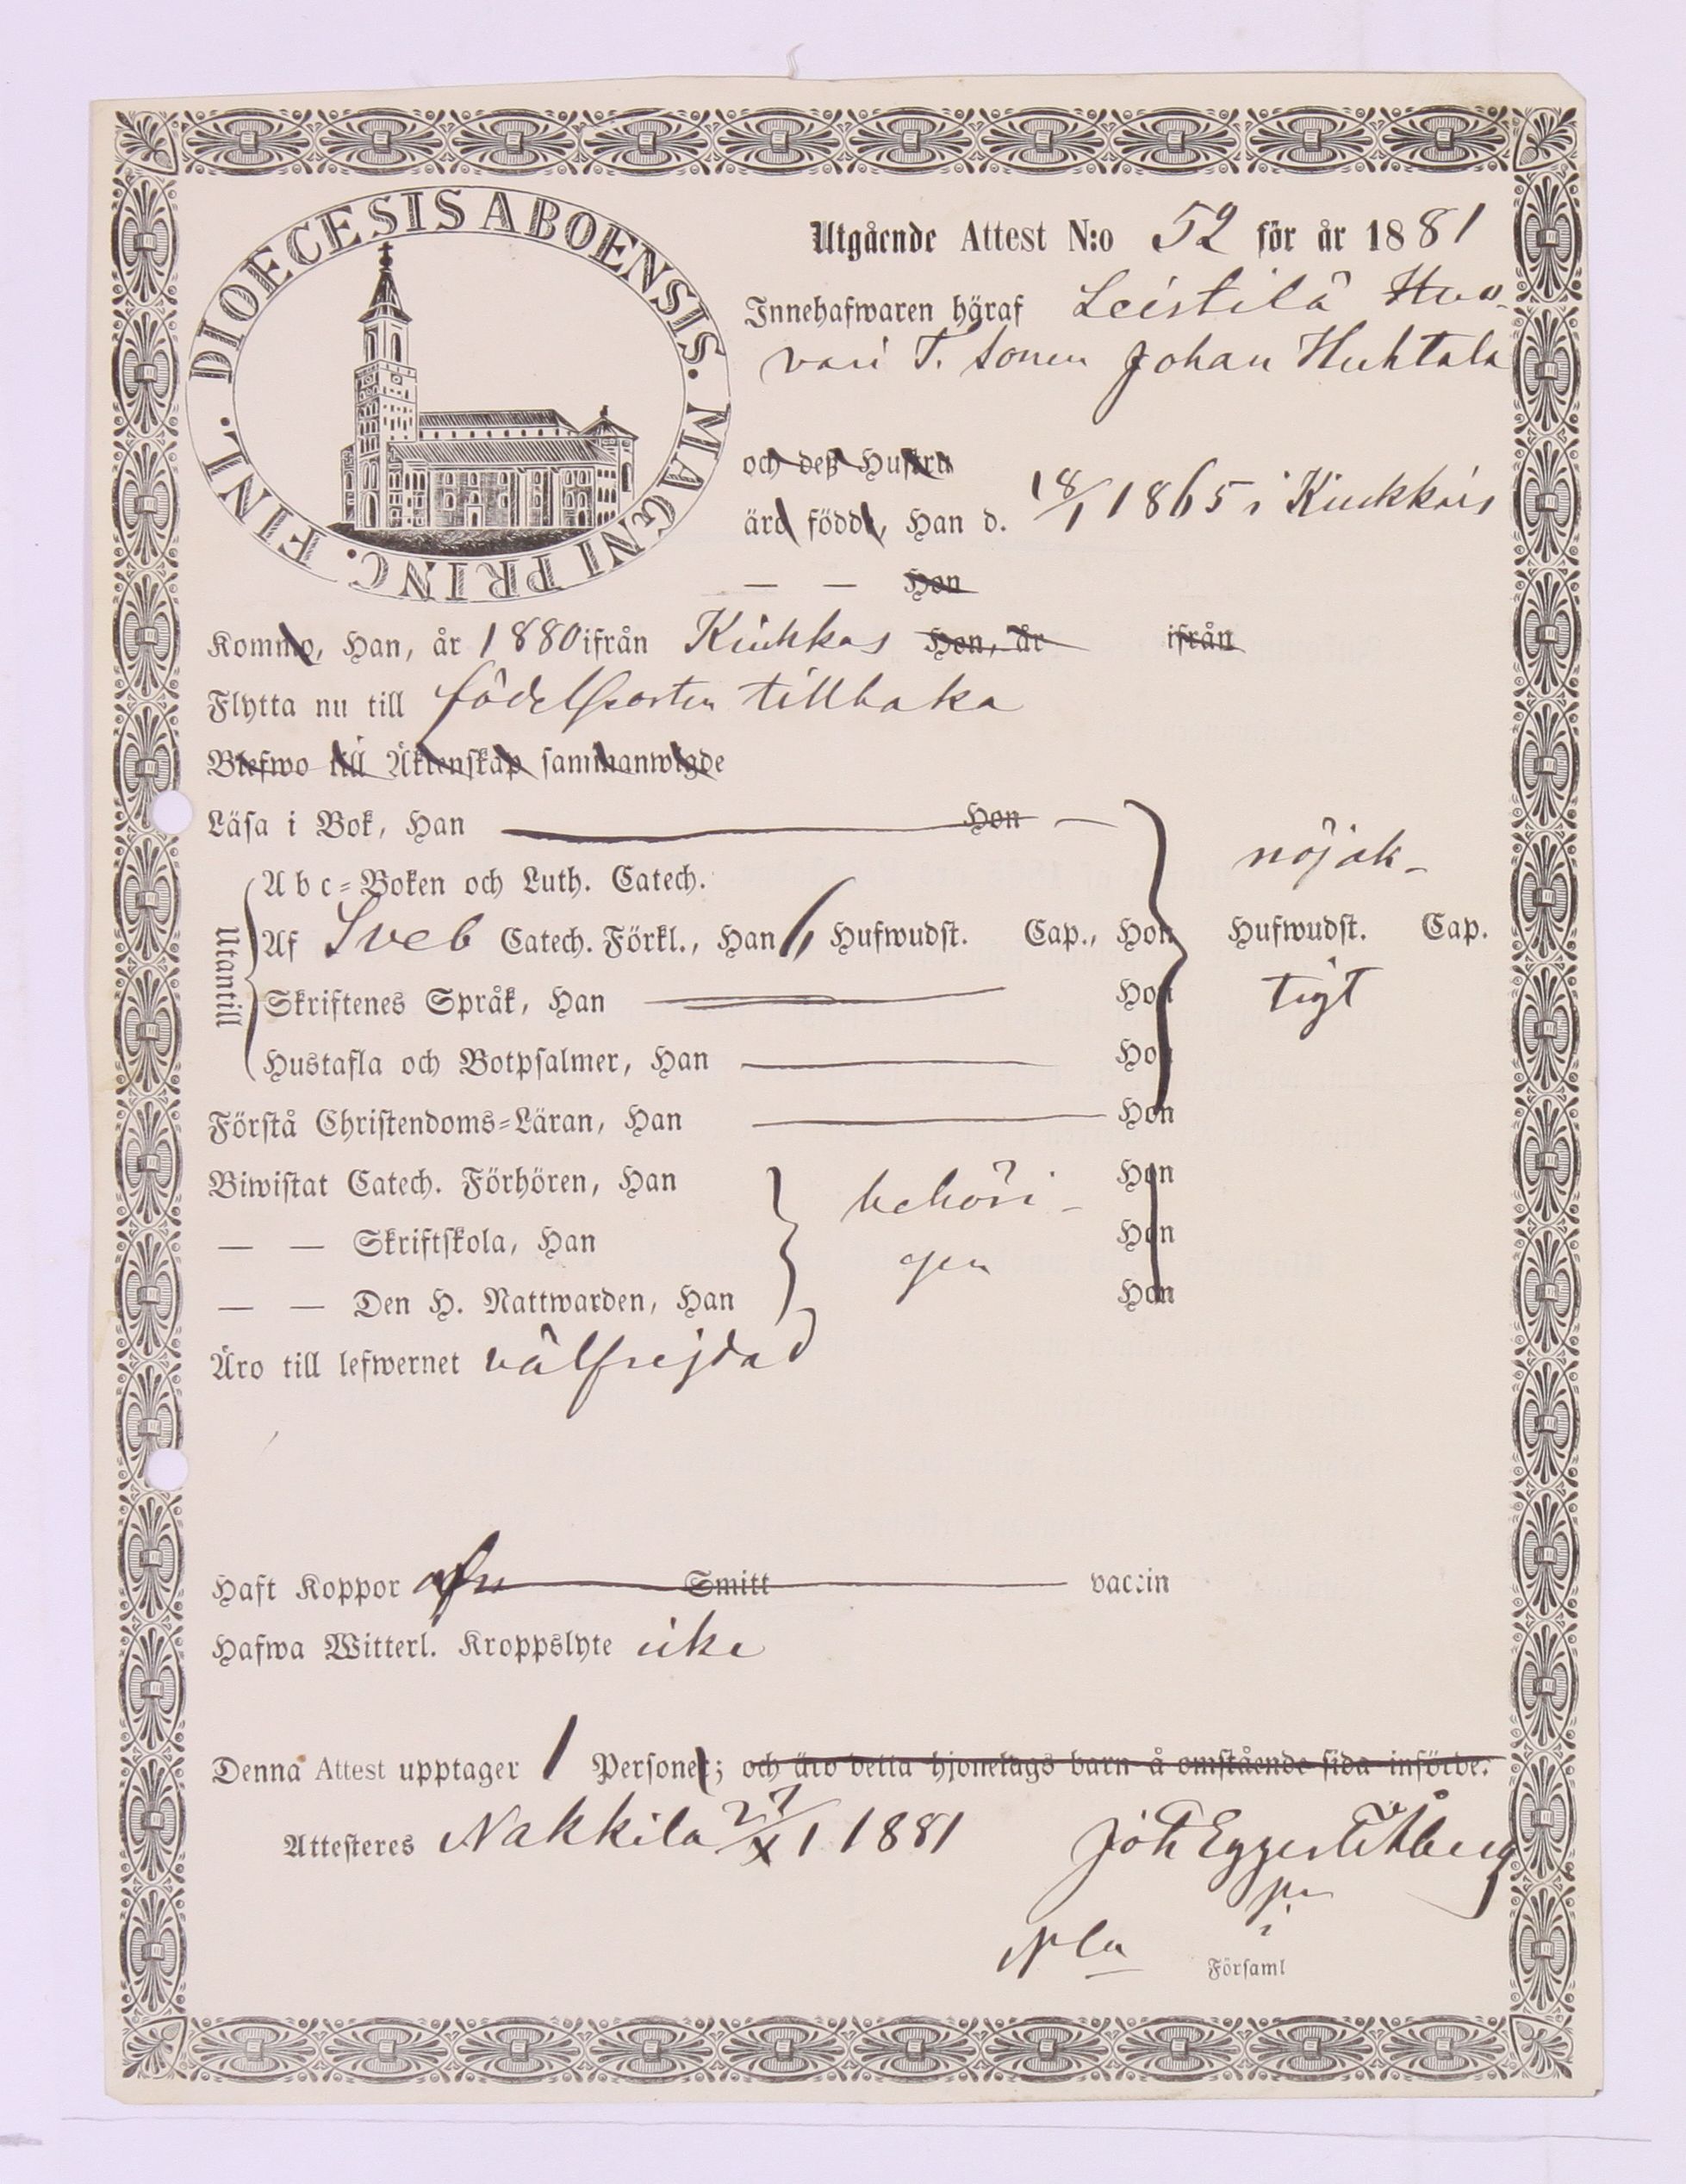 DIOECESIS ABOENSIS. MAGNI PRINC. FINL.
Utgående Attest N:o 52 för år 1881
Innehafwaren häraf Leistilä Huo-
vari T. sonen Johan Huhtala
och deß Hustru
äro födde, Han d. 18/1 1865 i Kiukkais
— — Hon
Kommo, Han, år 1880 ifrån Kiukkas Hon, år ifrån
Flytta nu till födelseorten tillbaka
Blefwo till Äktenskap sammanwigde
Läsa i Bok, Han Hon
nöjak-
Abc-Boken och Luth. Catech.
Utantill
Af Sveb Catech. Förkl., Han Hufwudst. Cap., Hon Hufwudst. Cap.
Skriftenes Språk, Han Hon tigt
Hustafla och Botpsalmer, Han Hon
Förstå Christendoms-Läran, Han Hon
Biwistat Catech. Förhören, Han behöri- Hon
— — Skriftskola, Han gen Hon
— — Den H. Nattwarden, Han Hon
Äro till lefwernet välfrejdad
Haft Koppor Smitt vaccin
Hafwa Witterl. Kroppslyte icke
Denna Attest upptager 1 Personer; och äro detta hjonelags barn å omstående sida införde.
Attesteres Nakkila 1881
i
Församl